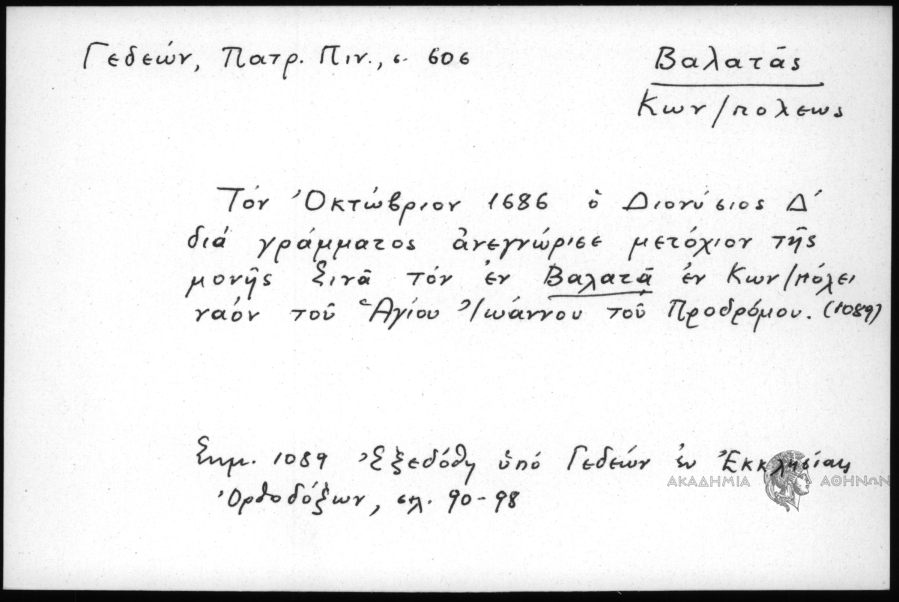 Γεδεών, Πατρ. Πιν., σ. 606
Βαλατᾶς
Κων/πολεως
Τόν Ὀκτώβριον 1686 ὁ Διονύσιος Δ'
διά γράμματος ἀνεγνώρισε μετόχιον τῆς
μονῆς Σινᾶ τόν ἐν Βαλατᾶ ἐν Κων/πόλει
ναόν τοῦ Ἁγίου Ἰωάννου τοῦ Προδρόμου. (1089)
Σημ. 1089 Ἐξεδόθη ὑπό Γεδεών ἐν Ἐκκλησίαις
Ὀρθοδόξων, σελ. 90-98
ΑΚΑΔΗΜΙΑ ΑΘΗΝΩΝ